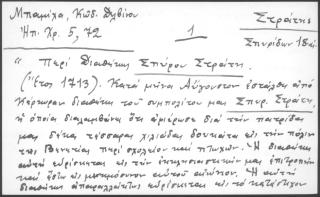 Μπαμίχα, Κώδ. Δηβίνου
Ἠπ. Χρ. 5, 72
1
Στράτης
Σπυρίδων 18 αἰ.
"Περὶ Διαθήκης Σπύρου Στράτη.
("Ἔτος 1713). Κατὰ μῆνα Αὔγουστον ἐστάλη ἀπὸ
Κέρκυραν διαθήκη τοῦ συμπολίτου μας Σπυρ. Στράτη,
ἡ ὁποία διαλαμβάνει ὅτι ἀφιέρωσε διὰ τὴν πατρίδα
μας δέκα τέσσαρας χιλιάδας δουκάτα εἰς τὴν πόλιν
τῆς Βενετίας περὶ σχολείου καὶ πτωχῶν. Ἡ διαθήκη
αὐτὴ εὑρίσκεται εἰς τὴν ἐκκλησιαστικήν μας ἐπιτροπὴν
καὶ εἰς μνημόσυνον αὐτοῦ αἰώνιον. Ἡ αὐτὴ
διαθήκη ἀπαραλλάκτως εὑρίσκεται εἰς τὸ κατάστιχον